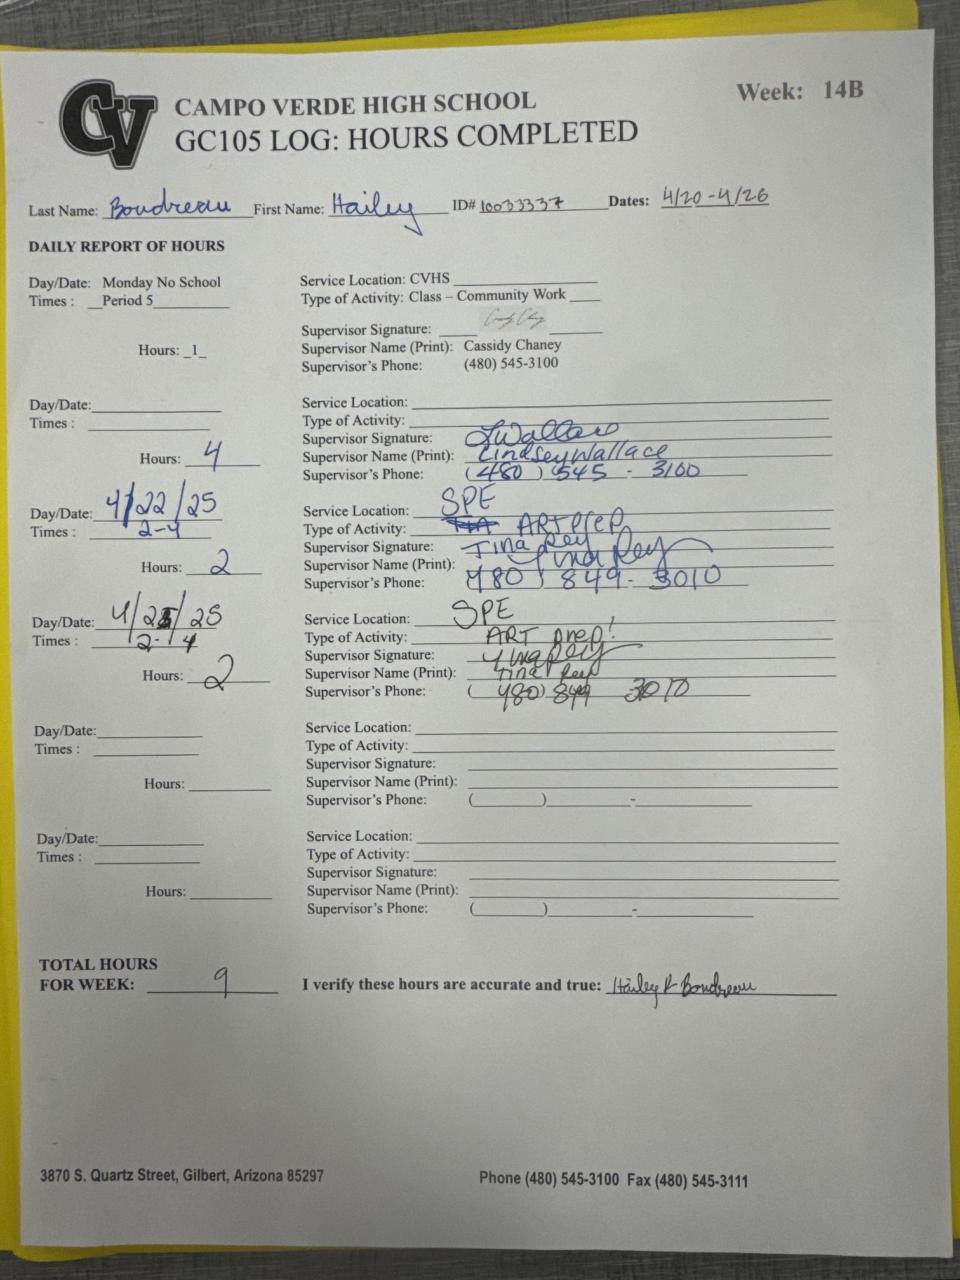 CV
CAMPO VERDE HIGH SCHOOL
GC105 LOG: HOURS COMPLETED
Week: 14B
Last Name: Boudreau First Name: Hailey ID# 10033337 Dates: 4/20-4/26
DAILY REPORT OF HOURS
Day/Date: Monday No School
Times : Period 5
Hours: 1
Service Location: CVHS
Type of Activity: Class – Community Work
Supervisor Signature:
Supervisor Name (Print): Cassidy Chaney
Supervisor's Phone: (480) 545-3100
Day/Date:
Times :
Hours: 4
Service Location:
Type of Activity:
Supervisor Signature: LWallace
Supervisor Name (Print): Lindsey Wallace
Supervisor's Phone: (480) 545 - 3100
Day/Date: 4/22/25
Times : 2-4
Hours: 2
Service Location: SPE
Type of Activity: ART prep
Supervisor Signature: Tina Rey
Supervisor Name (Print): Tina Rey
Supervisor's Phone: (480) 849-3010
Day/Date: 4/25/25
Times : 2-4
Hours: 2
Service Location: SPE
Type of Activity: ART prep!
Supervisor Signature: Tina Rey
Supervisor Name (Print): Tina Rey
Supervisor's Phone: (480) 849 3010
Day/Date:
Times :
Hours:
Service Location:
Type of Activity:
Supervisor Signature:
Supervisor Name (Print):
Supervisor's Phone: ( ) -
Day/Date:
Times :
Hours:
Service Location:
Type of Activity:
Supervisor Signature:
Supervisor Name (Print):
Supervisor's Phone: ( ) -
TOTAL HOURS
FOR WEEK: 9
I verify these hours are accurate and true: Hailey R Boudreau
3870 S. Quartz Street, Gilbert, Arizona 85297
Phone (480) 545-3100 Fax (480) 545-3111